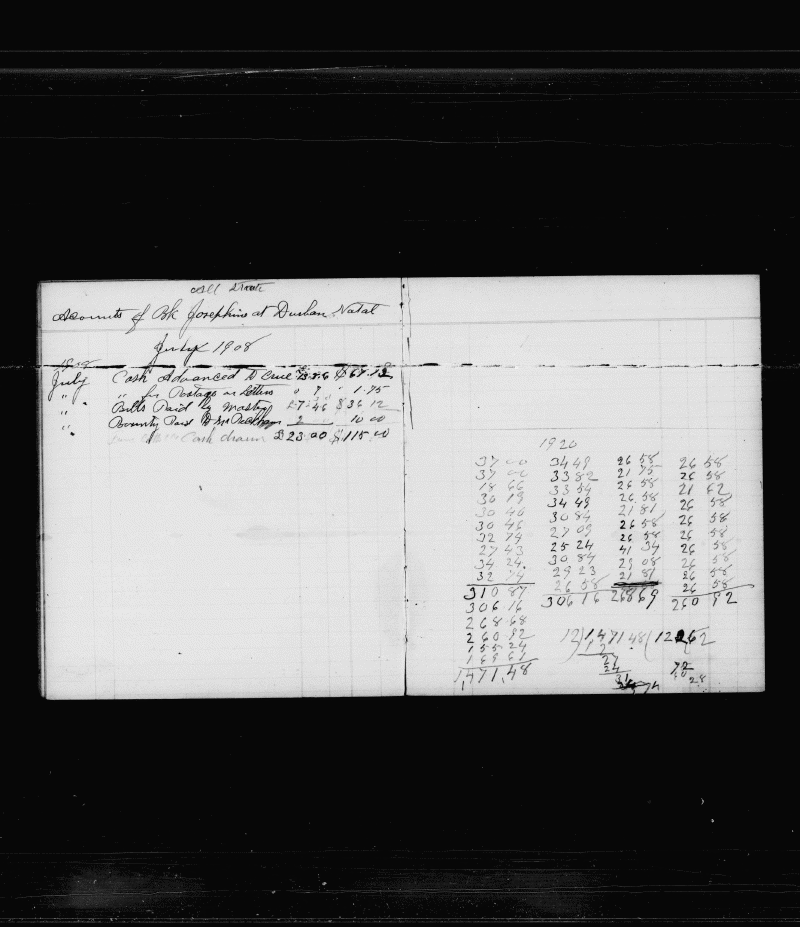 Accounts of Bk Josephine at Durban Natal
July 1908
July Cash Advanced to Crue $67.13
" " for Postage on Letters " 7 " 1.75
" Bills Paid by Master £7 4 6 $36 12
" Bounty Paid to Peckham 2 10 00
Cash drawn £23.00 $115.00
1920
37 00 34 49 26 58 26 58
37 00 33 82 21 75 26 58
18 66 33 54 26 58 21 62
36 19 34 49 26 58 26 58
30 46 30 84 21 81 26 58
30 46 27 09 26 58 26 58
32 74 25 24 26 58 26 58
27 43 30 84 41 34 26 58
34 24 29 23 29 08 26 58
32 74 26 58 21 81 26 58
310 87 306 16 268 69 260 92
306 16
268 68
260 92
155 24
169 61
1,471,48
12)1,471 48(122 62
12
27
24